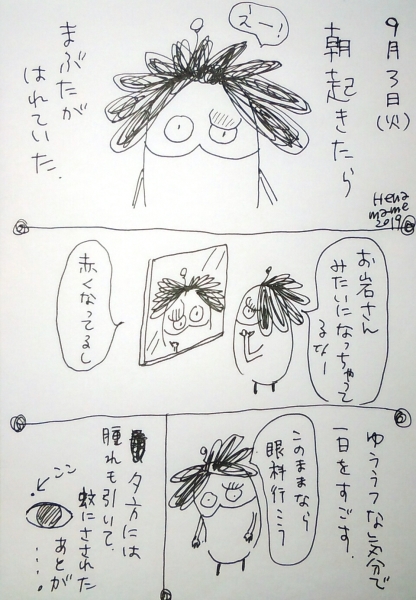 9月3日(火)
朝起きたら
えー!
まぶたが
はれていた.
Hena
mame
2019
お岩さん
みたいになっちゃって
るなー
赤くなってるし
ゆううつな気分で
一日をすごす.
このままなら
眼科行こう
夕方には
腫れも引いて.
蚊にさされた
あとが
....
ココ